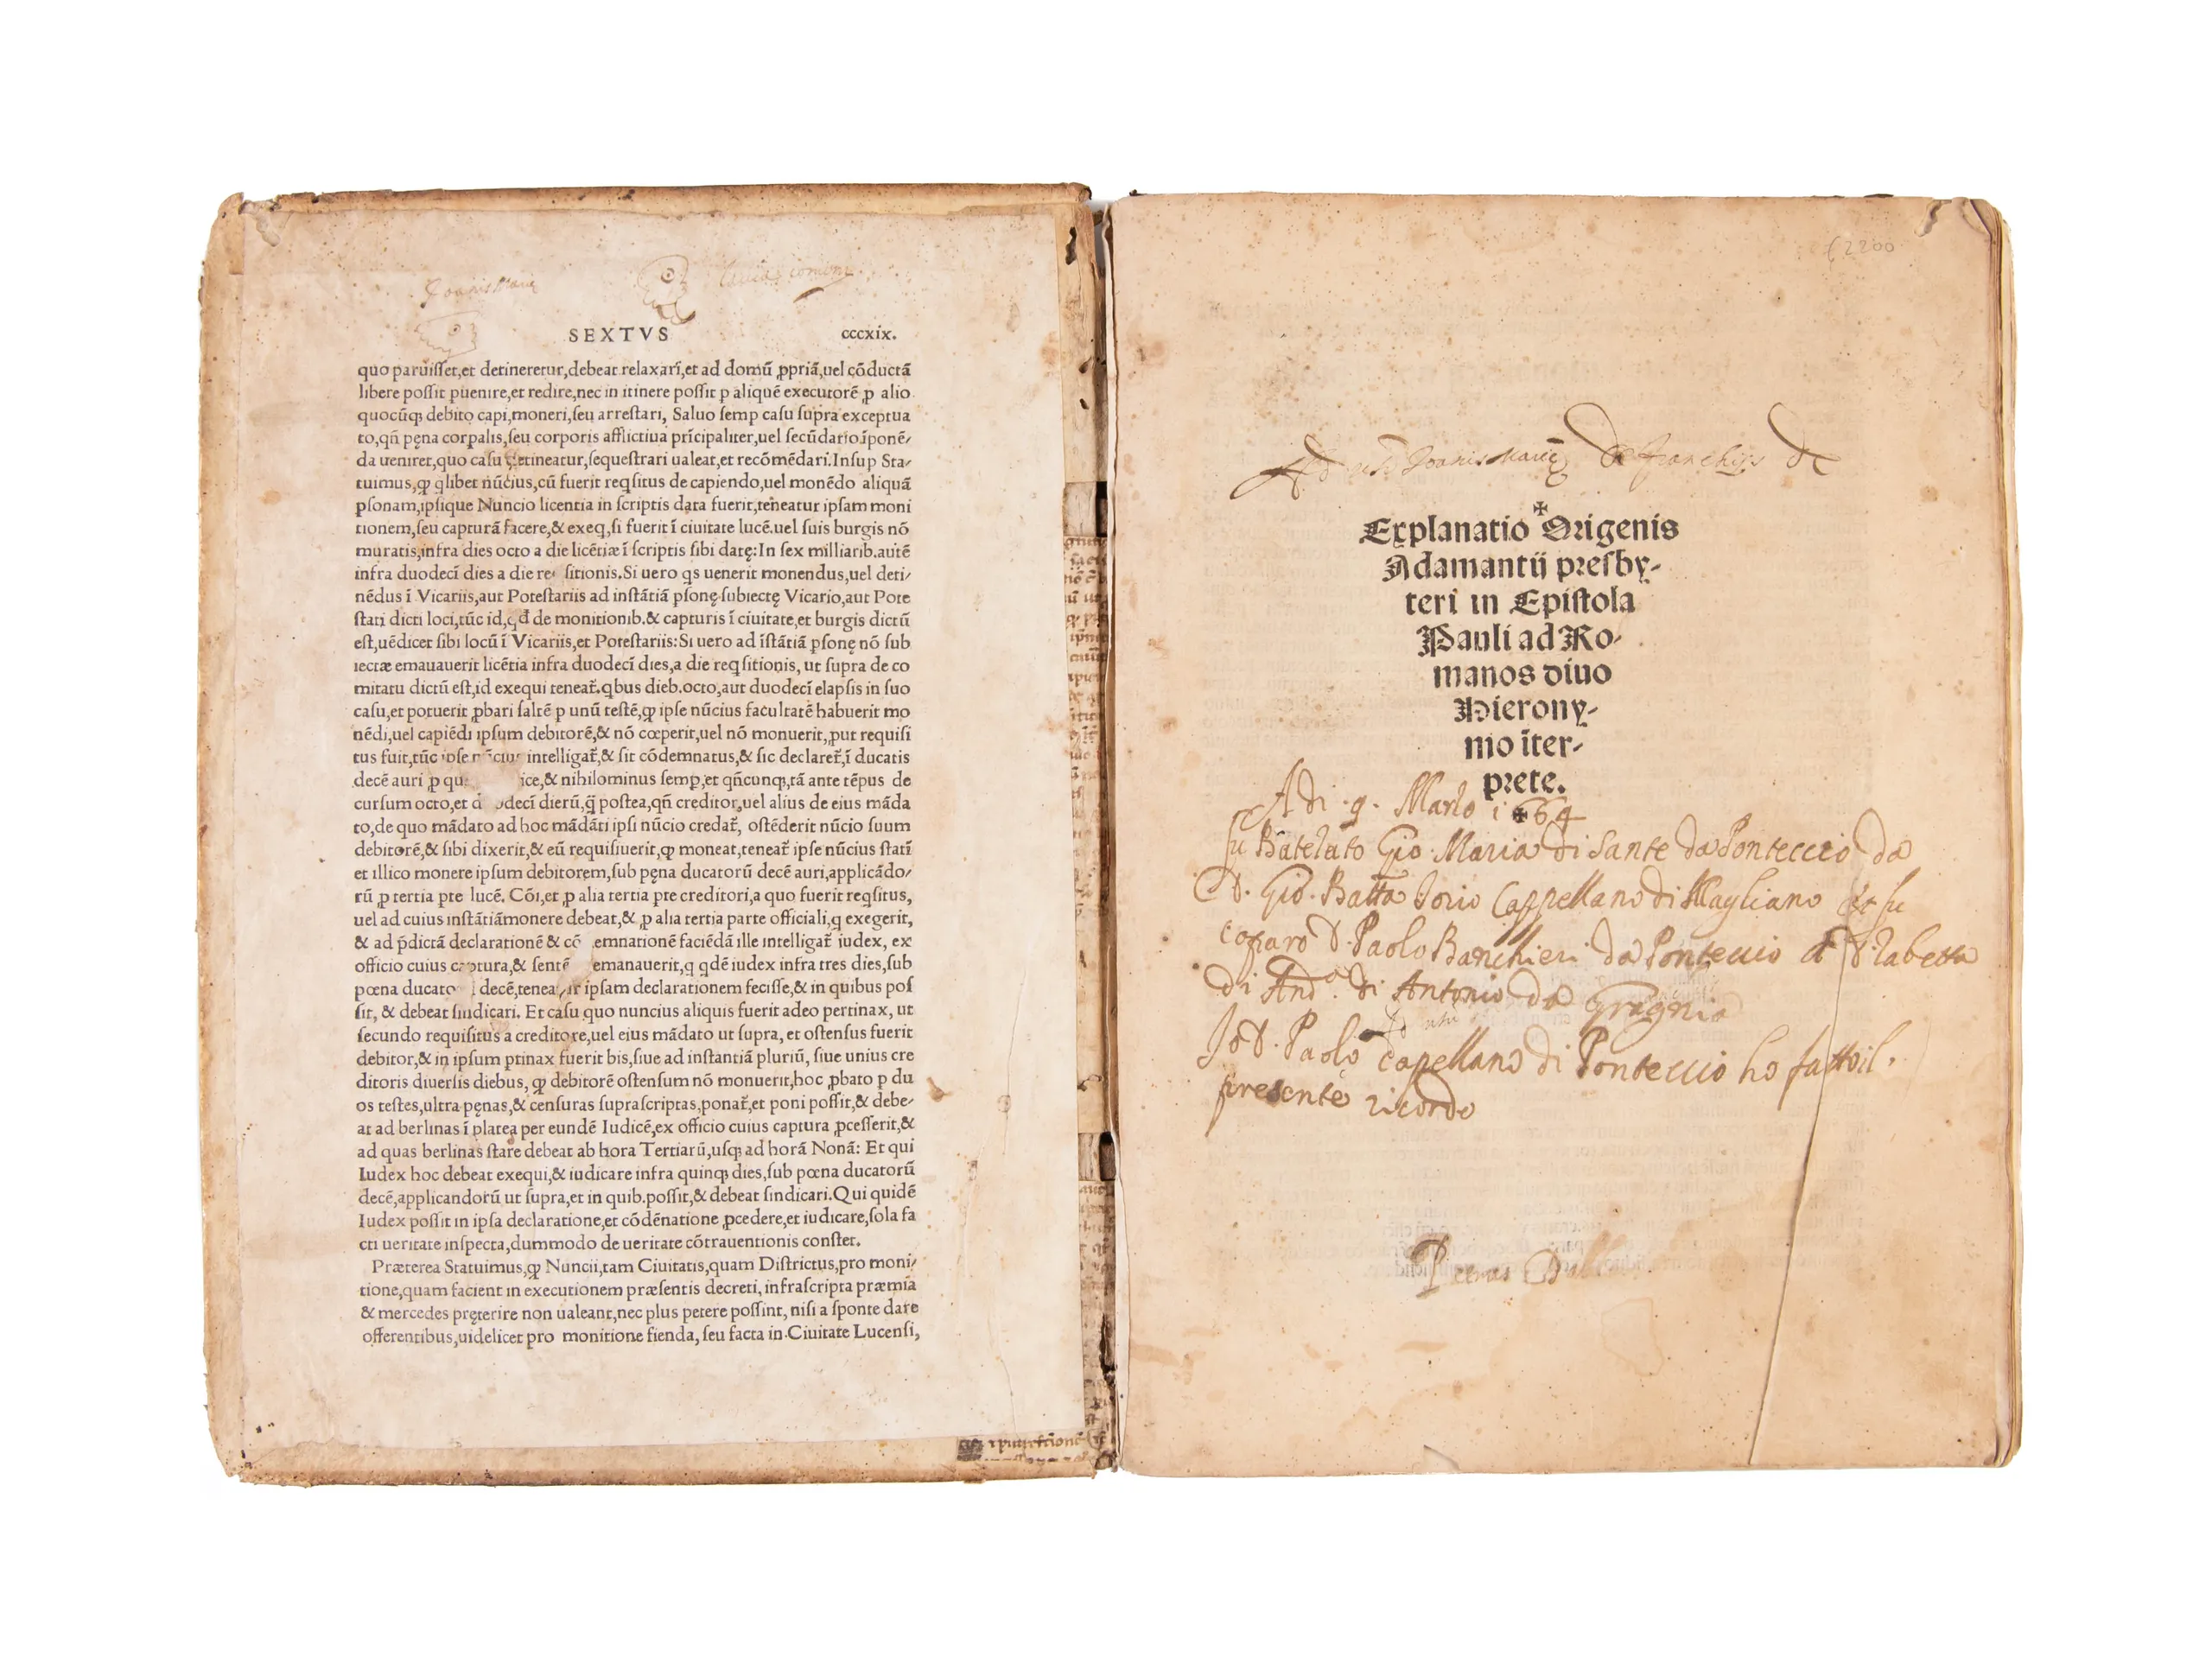 Joanis Marie
SEXTVS cccxix.
quo paruiſſet,et detineretur,debeat relaxari,et ad domũ ꝓpriã,uel cõductã
libere poſſit puenire,et redire,nec in itinere poſſit p aliquẽ executorẽ ꝓ alio
quocũqꝫ debito capi,moneri,ſeu arreſtari, Saluo ſemp caſu ſupra exceptua
to,qñ pęna corpalis,ſeu corporis afflictiua prĩcipaliter,uel ſecũdario ĩponẽ/
da ueniret,quo caſu detineatur,ſequeſtrari ualeat,et recõmẽdari.Inſup Sta/
tuimus,ꝙ qlibet nũcius,cũ fuerit reqſitus de capiendo,uel monẽdo aliquã
pſonam,ipſique Nuncio licentia in ſcriptis data fuerit,teneatur ipſam moni
tionem,ſeu capturã facere,& exeq,ſi fuerit ĩ ciuitate lucẽ.uel ſuis burgis nõ
muratis,infra dies octo a die licẽtiæ ĩ ſcriptis ſibi datę:In ſex milliarib.autẽ
infra duodecĩ dies a die re ſitionis.Si uero qs uenerit monendus,uel deti/
nẽdus ĩ Vicariis,aut Poteſtariis ad inſtãtiã pſonę ſubiectę Vicario,aut Pote
ſtati dicti loci,tũc id,qđ de monitionib.& capturis ĩ ciuitate,et burgis dictũ
eſt,uẽdicet ſibi locũ ĩ Vicariis,et Poteſtariis:Si uero ad ĩſtãtiã pſonę nõ ſub
iectæ emauauerit licẽtia infra duodecĩ dies,a die reqſitionis, ut ſupra de co
mitatu dictũ eſt,id exequi teneat̃.qbus dieb.octo,aut duodecĩ elapſis in ſuo
caſu,et potuerit ꝓbari ſaltẽ p unũ teſtẽ,ꝙ ipſe nũcius facultatẽ habuerit mo
nẽdi,uel capiẽdi ipſum debitorẽ,& nõ cœperit,uel nõ monuerit,ꝓut requiſi
tus fuit,tũc ipſe nũcius intelligat̃,& ſit cõdemnatus,& ſic declaret̃,ĩ ducatis
decẽ auri ꝓ qu ice,& nihilominus ſemp,et qñcunqꝫ,tã ante tẽpus de
curſum octo,et d odecĩ dierũ,q̃ poſtea,qñ creditor,uel alius de eius mãda
to,de quo mãdato ad hoc mãdãti ipſi nũcio credat̃, oſtẽderit nũcio ſuum
debitorẽ,& ſibi dixerit,& eũ requiſiuerit,ꝙ moneat,teneat̃ ipſe nũcius ſtatĩ
et illico monere ipſum debitorem,ſub pęna ducatorũ decẽ auri,applicãdo/
rũ ꝓ tertia pte lucẽ. Cõi,et ꝓ alia tertia pte creditori,a quo fuerit reqſitus,
uel ad cuius inſtãtiã monere debeat,& ꝓ alia tertia parte officiali,q exegerit,
& ad p̃dictã declarationẽ & cõ emnationẽ faciẽdã ille intelligat̃ iudex, ex
officio cuius captura,& ſentẽ emanauerit,q qdẽ iudex infra tres dies,ſub
pœna ducato decẽ,teneatur ipſam declarationem feciſſe,& in quibus poſ
ſit, & debeat ſindicari. Et caſu quo nuncius aliquis fuerit adeo pertinax, ut
ſecundo requiſitus a creditore,uel eius mãdato ut ſupra, et oſtenſus fuerit
debitor,& in ipſum ptinax fuerit bis,ſiue ad inſtantiã pluriũ, ſiue unius cre
ditoris diuerſis diebus, ꝙ debitorẽ oſtenſum nõ monuerit,hoc ꝓbato p du
os teſtes,ultra pęnas,& cenſuras ſupraſcriptas,ponat̃,et poni poſſit,& debe/
at ad berlinas ĩ platea per eundẽ Iudicẽ,ex officio cuius captura ꝓceſſerit,&
ad quas berlinas ſtare debeat ab hora Tertiarũ,uſqꝫ ad horã Nonã: Et qui
Iudex hoc debeat exequi,& iudicare infra quinqꝫ dies,ſub pœna ducatorũ
decẽ,applicandorũ ut ſupra,et in quib.poſſit,& debeat ſindicari.Qui quidẽ
Iudex poſſit in ipſa declaratione,et cõdẽnatione ꝓcedere,et iudicare,ſola fa
cti ueritate inſpecta,dummodo de ueritate cõtrauentionis conſtet.
Præterea Statuimus,ꝙ Nuncii,tam Ciuitatis,quam Diſtrictus,pro moni/
tione,quam facient in executionem præſentis decreti, infraſcripta præmia
& mercedes pręterire non ualeant,nec plus petere poſſint, niſi a ſponte dare
offerentibus,uidelicet pro monitione fienda, ſeu facta in Ciuitate Lucenſi,
2200
Joanis Marie de franchis de
Explanatio Origenis
Adamantij presby-
teri in Epistola
Pauli ad Ro-
manos diuo
Hierony-
mo ĩter-
prete.
Adi 9. Marzo 1664
fu Batezato Gio: Maria di Sante da Ponteccio da
D. Gio: Batta Iorio Cappellano di Magliano et fu
coparo D. Paolo Banchieri da Ponteccio et D. labetta
di And.ª di Antonio da Gragnia
Io D. Paolo Capellano di Ponteccio ho fatto il
presente ricordo